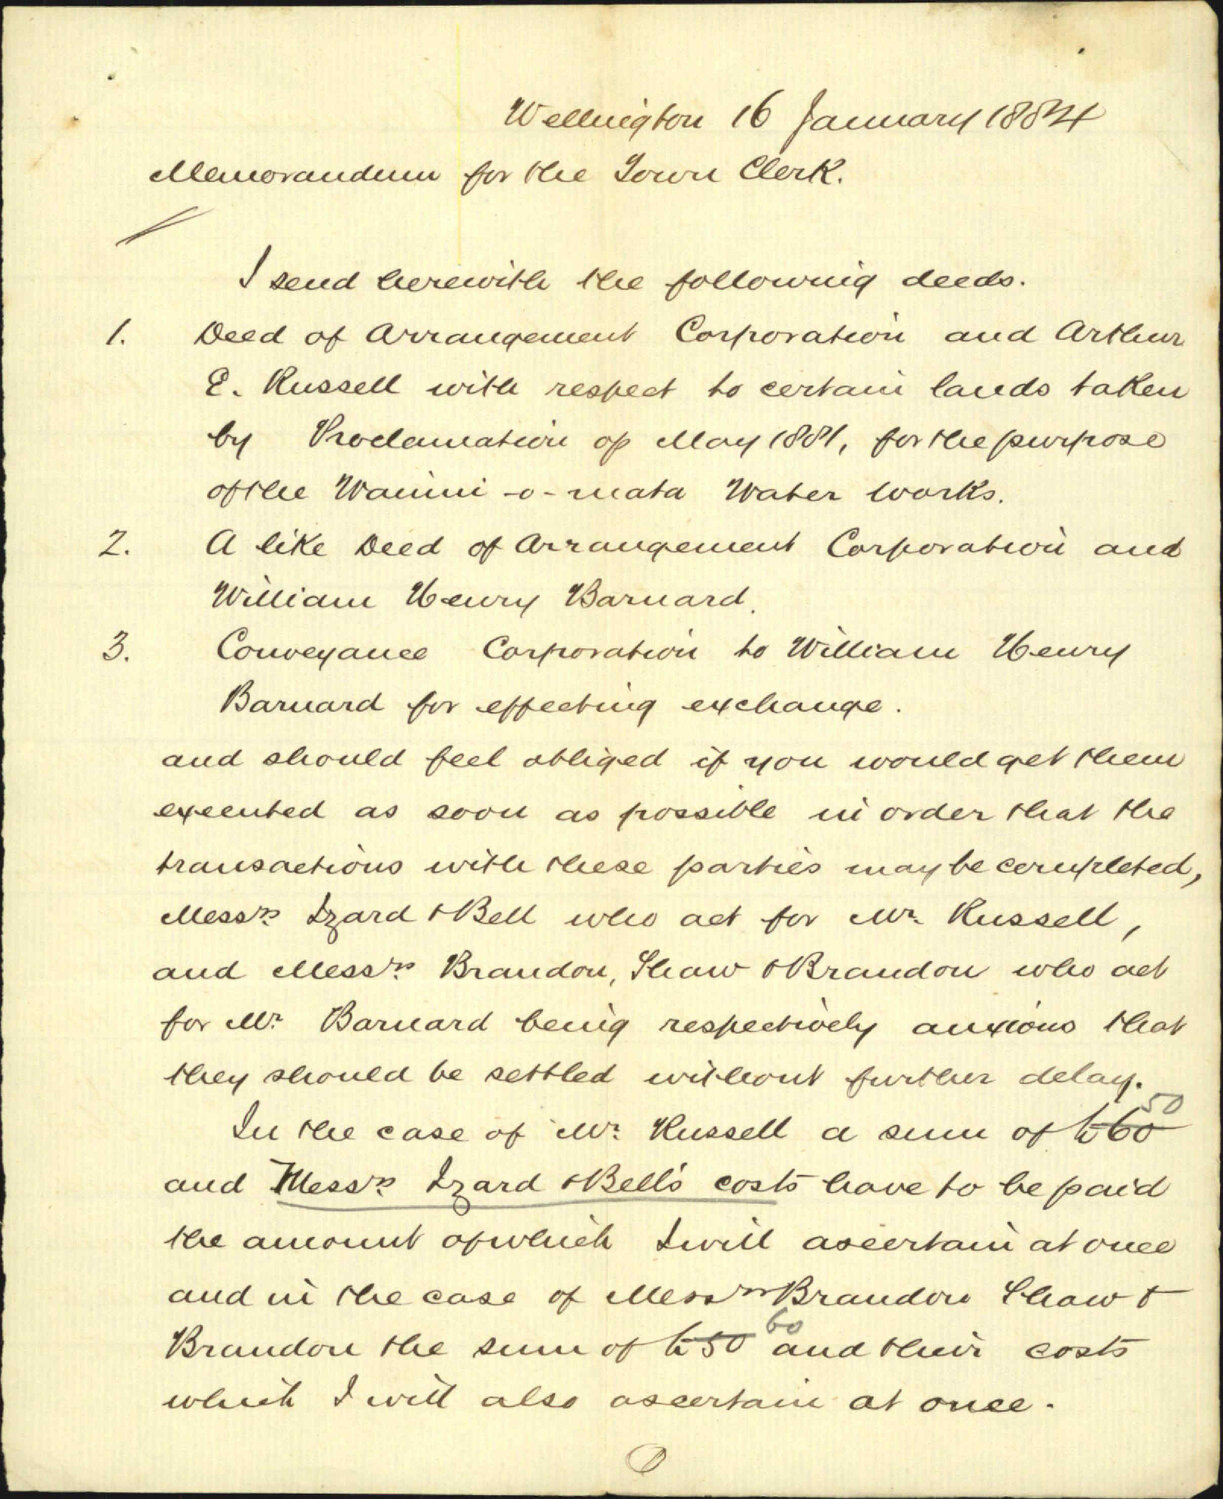 Wellington 16 January 1884
Memorandum for the Town Clerk.
I send herewith the following deeds.
1. Deed of Arrangement Corporation and Arthur
E. Russell with respect to certain lands taken
by Proclamation of May 1881, for the purpose
of the Wainui-o-mata Water Works.
2. A like Deed of Arrangement Corporation and
William Henry Barnard.
3. Conveyance Corporation to William Henry
Barnard for effecting exchange.
and should feel obliged if you would get them
executed as soon as possible in order that the
transactions with these parties may be completed,
Messrs Izard & Bell who act for Mr Russell,
and Messrs Brandon, Shaw & Brandon who act
for Mr Barnard being respectively anxious that
they should be settled without further delay.
50
In the case of Mr Russell a sum of £60
and Messrs Izard & Bell's costs have to be paid
the amount of which I will ascertain at once
and in the case of Messrs Brandon Shaw &
60
Brandon the sum of £50 and their costs
which I will also ascertain at once.